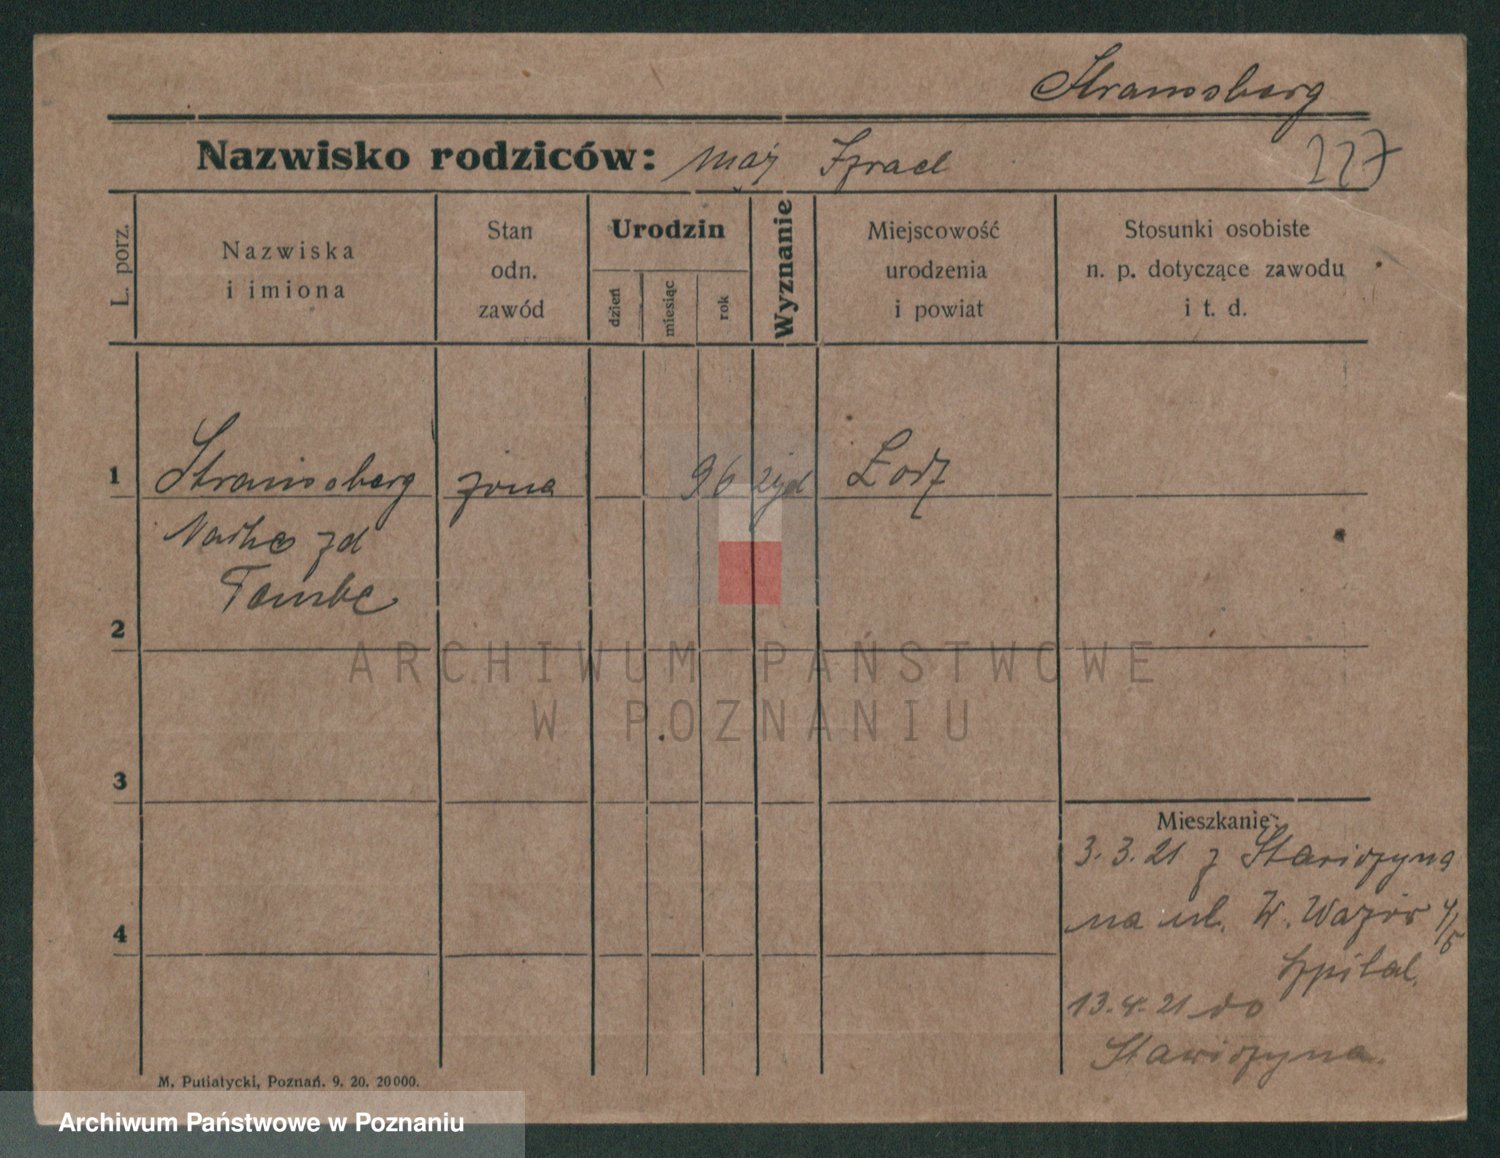 Stramsberg
Nazwisko rodziców: mąż Izrael
227
L. porz.
Nazwiska
i imiona
Stan
odn.
zawód
Urodzin
dzień
miesiąc
rok
Wyznanie
Miejscowość
urodzenia
i powiat
Stosunki osobiste
n. p. dotyczące zawodu
i t. d.
1
Stramsberg
żona
96
żyd
Łodz
zd
Taube
2
3
4
Mieszkanie:
3.3.21 z Stawiszyna
na ul. W. 4/5
Szpital.
13.4.21 do
Stawiszyna.
M. Putiatycki, Poznań. 9. 20. 20000.
ARCHIWUM PAŃSTWOWE
W POZNANIU
Archiwum Państwowe w Poznaniu